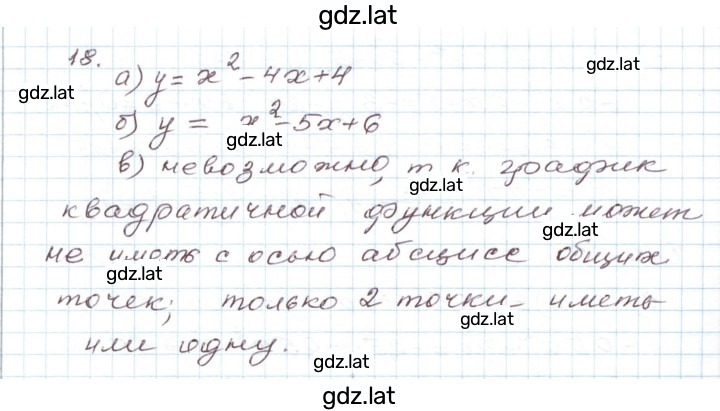 gdz.lat
18.
а) y = x² - 4x + 4
gdz.lat
gdz.lat
б) y = x² - 5x + 6
gdz.lat
в) невозможно, т к. график
gdz.lat
квадратичной функции может
gdz.lat
не иметь с осью абсцисс общих
gdz.lat
точек; только 2 точки - иметь
gdz.lat
или одну.
gdz.lat
gdz.lat